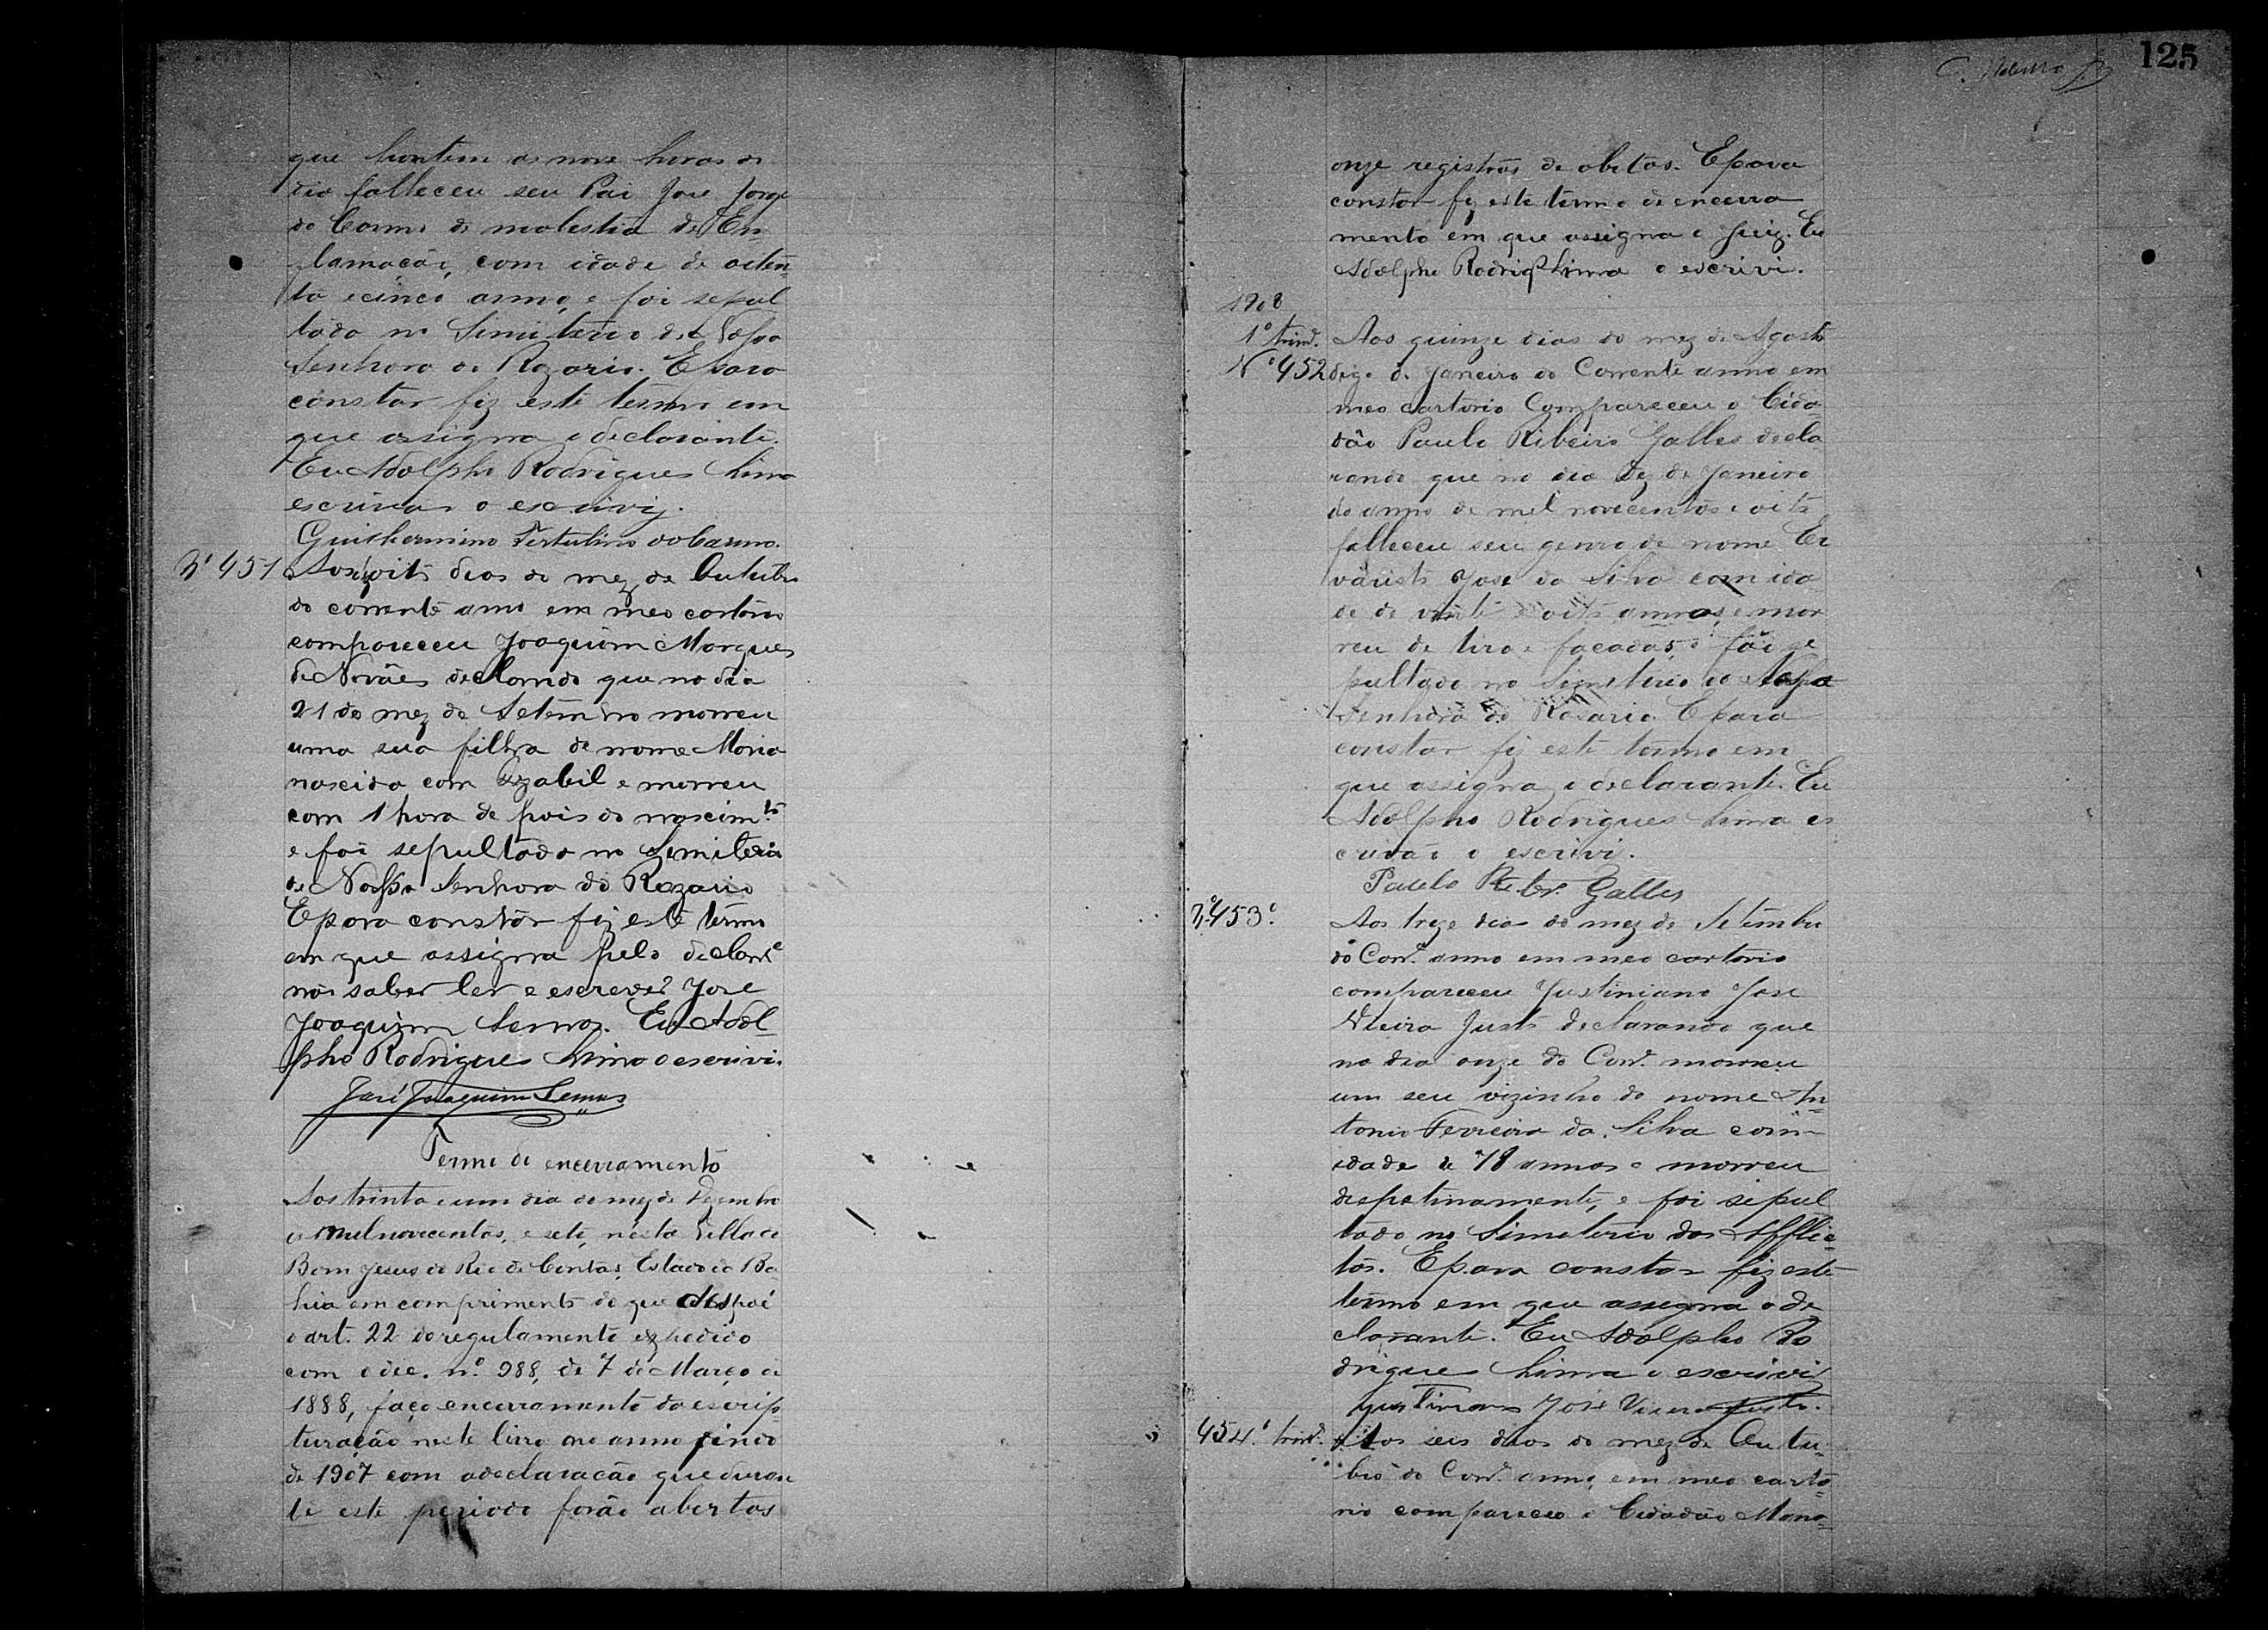 que hontem as nove horas do
dia falleceu seu Pai Jose Jorge
do Carmo de molestia de En
flamacão, com idade de oiten
ta e cinco anno, e foi sepul
tado no Simiterio de Nossa
Senhora do Rozario. E para
constar fiz este termo em
que assigna o declarante.
Eu Adolpho Rodrigues Lima
escrivão o escrivij.
Guilhermino Tertulino do Carmo.
Nº 451 Aos oito dias do mez de Outubro
do corrente anno em meo cartorio
compareceu Joaquim Marques
de Novães declarando que no dia
21 do mez de Setembro morreu
uma sua filha de nome Maria
nascida com Izabil e morreu
com 1 hora de pois do nascimto
e foi sepultada no Simiterio
de Nossa Senhora do Rozario
E para constar fiz este termo
em que assigna pelo declarte
não saber ler e escrever Jose
Joaquim Lemos. Eu Adol
pho Rodrigues Lima o escrivi.
José Joaquim Lemos
Termo de encerramento
Aos trinta e um dia do mez de Dezembro
de mil novecentos, e sete, nésta Villa de
Bom Jesus do Rio de Contas, Estado da Ba
hia em comprimento do que dispoé
o art. 22 do regulamento expedido
com o dec. nº 988, de 7 de Março de
1888, faço encerramento da escrip
turação neste livro no anno findo
de 1907 com a declaracão que duran
te este periodo forão abertos
125
onze registros de obitos. E para
constar fiz este termo de encerra
mento em que assigna o Juiz. Eu
Adolpho Rodrigs Lima o escrivi.
1908
1º trimd.
Nº 452
Aos quinze dias do mez de Agosto
digo de Janeiro do Corrente anno em
meo cartorio Compareceu o Cida
dão Paulo Ribeiro Galles decla
rando que no dia Dez de Janeiro
do anno de mil novecentos e oito
falleceu seu genro de nome Ev
varisto Jose da Silva com ida
de de vinte e oito annos, e mor
reu de tiro e facadas, e foi se
pultado no Simiterio de Nossa
Senhora do Rosario. E para
constar fiz este termo em
que assigna o declarante. Eu
Adolpho Rodrigues Lima es
crivão o escrivi.
Paulo Ribr. Galles
Nº 453º.
Aos treze dias do mez de Setembro
do Corre. anno em meo cartorio
compareceu Justiniano Jose
Vieira Justo declarando que
no dia onze do Corre. morreu
um seu vizinho de nome An
tonio Ferreira da Silva com
idade de 78 annos e morreu
diepetinamente, e foi sepul
tado no Simiterio dos Afflic
tos. E para constar fiz este
termo em que assegna o de
clarante. Eu Adolpho Ro
drigues Lima o escrivi
Justiniano José Vieira Justo.
454º. trimd.
Aos seis dias do mez de Outu
bro do Corre. anno, em meo carto
rio compareceo o Cidadão Mano